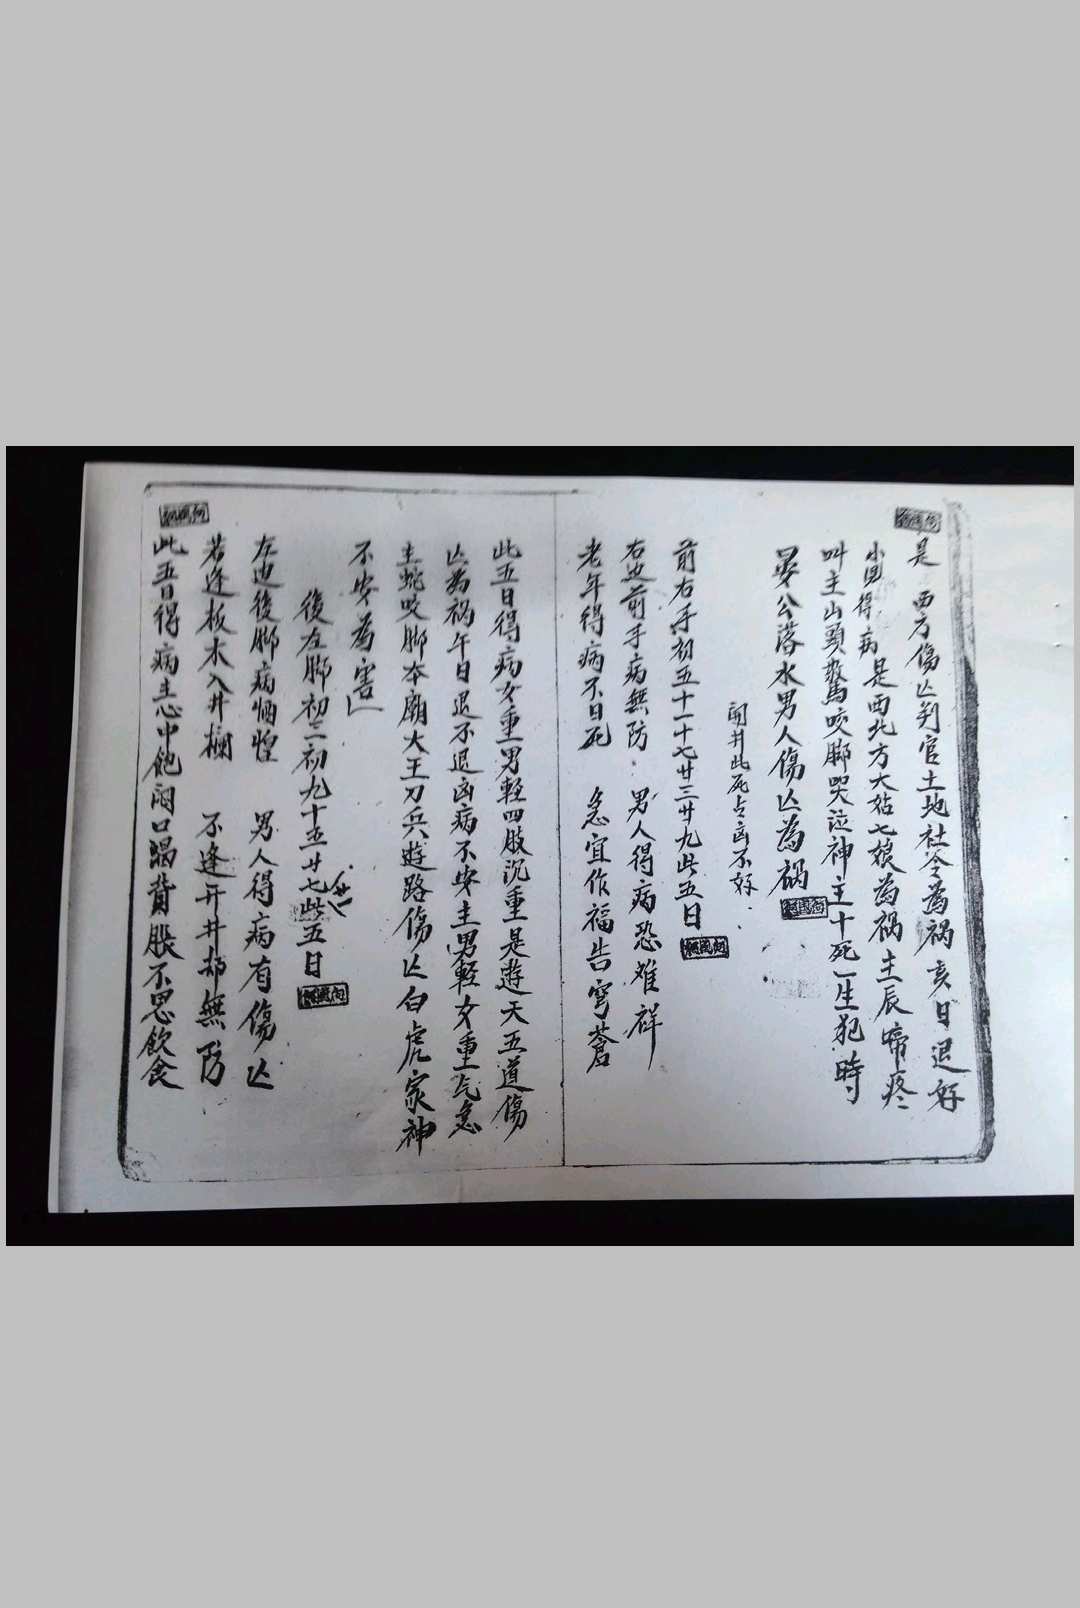 是西方傷亾判官土地社令為禍亥日退好
小児得病是西北方大姑七娘為禍主辰啼疼
叫主山頭驚馬咬脚哭泣神主十死一生犯時
晏公落水男人傷亾為禍
開井此死占凶不好
前右手初五十一十七廿三廿九此五日
右边前手病無防 男人得病恐难祥
老年得病不日死 急宜作福告穹蒼
此五日得病女重男軽四肢沉重是遊天五道傷
亾為禍午日退不退凶病不安主男軽女重气急
主蛇咬脚本廟大王刀兵遊路傷亾白虎家神
不安為害
後左脚初三初九十五廿七此五日
廿一
左边後脚病恓惶 男人得病有傷亾
若逢板木入井欄 不逢开井却無防
此五日得病主心中飽悶口渴背脹不思飲食